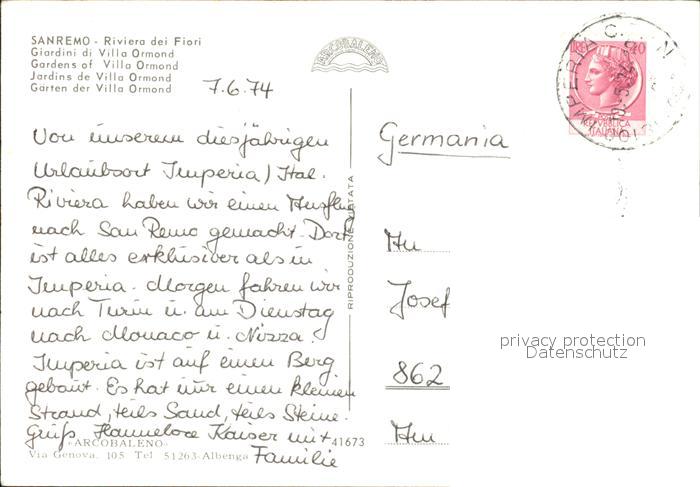 SANREMO - Riviera dei Fiori
Giardini di Villa Ormond
Gardens of Villa Ormond
Jardins de Villa Ormond
Gärten der Villa Ormond
ARCOBALENO
7.6.74
Von unserem diesjährigen
Urlaubsort Imperia / Ital.
Riviera haben wir einen Ausflug
nach San Remo gemacht. Dort
ist alles exklusiver als in
Imperia. Morgen fahren wir
nach Turin u. am Dienstag
nach Monaco u. Nizza.
Imperia ist auf einen Berg
gebaut. Es hat nur einen kleinen
Strand, teils Sand, teils Steine.
Gruß Hannelore Kaiser mit
Familie
«ARCOBALENO»
Via Genova, 105 Tel 51263-Albenga
41673
RIPRODUZIONE VIETATA
Germania
An
Josef
862
Am
40
REPUBBLICA
ITALIANA
IMPERIA
privacy protection
Datenschutz